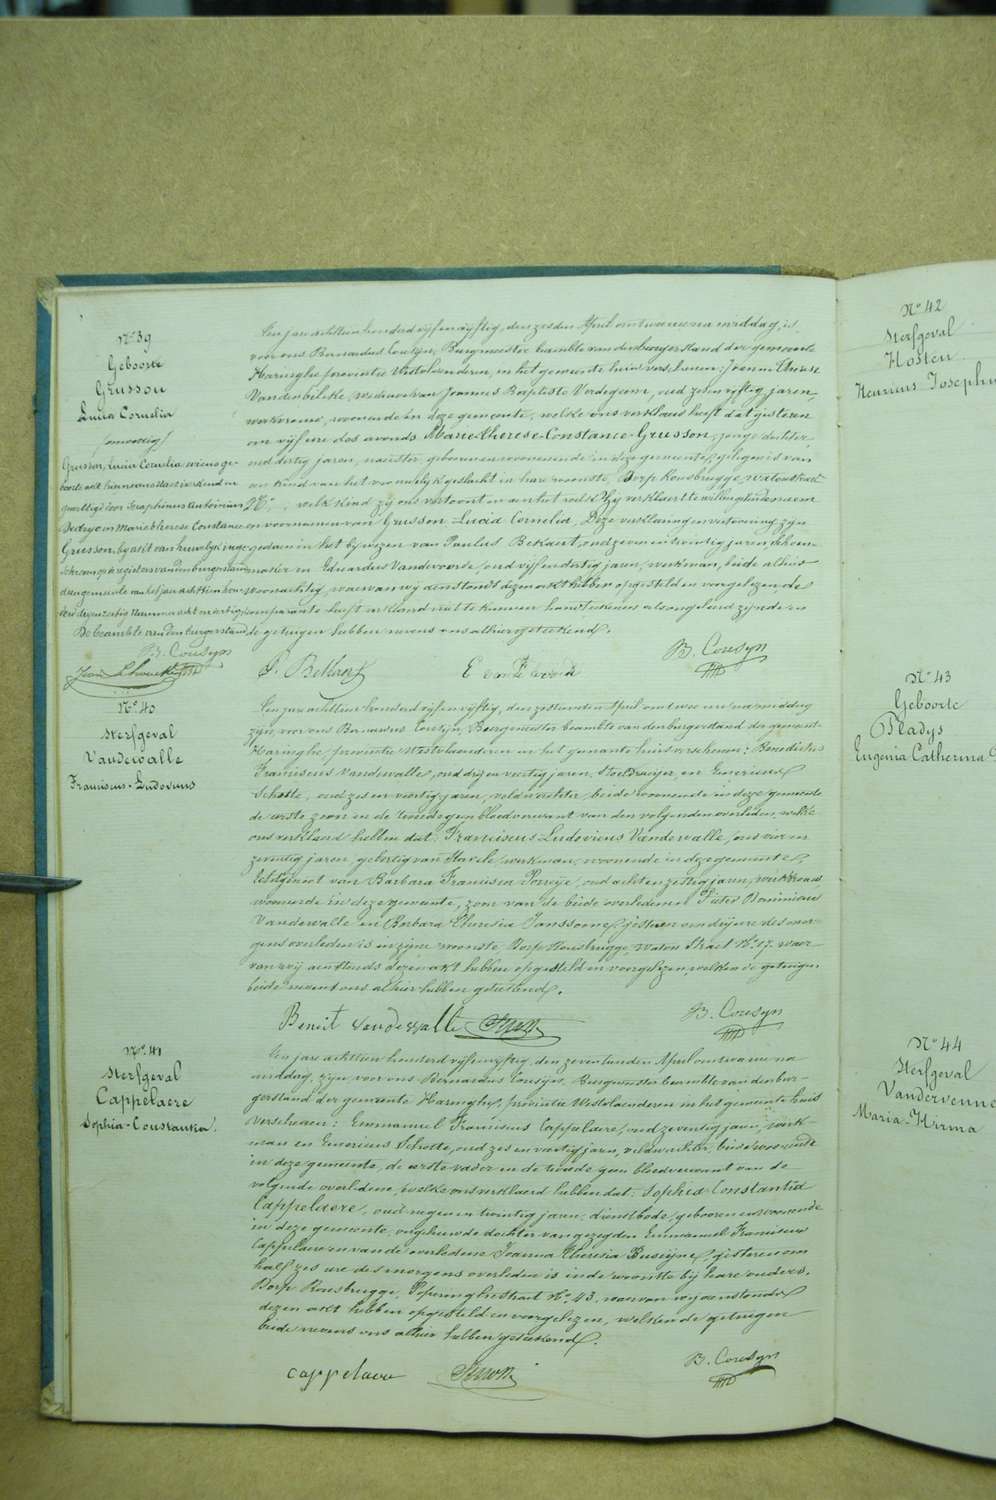 No 39
Geboorte
Grusson
Lucia Cornelia
(onwettig)
Grusson, Lucia Cornelia, wiens ge-
boorte acht hiernevens staat is erkend en
gewettigd door Seraphinus Antonius
Dedryo en Marie therese Constance
Grusson, by akt van huwelyk inge-
schreven op de registers van den burgerstand
dezer gemeente van het jaar achttien hon-
De beambte van den burgerstand
B. Cousyn
Een jare achttien honderd vyfenvyftig, den zesden April om twee ure na middag, is
voor ons Bernardus Cousyn, Burgmeester beambte van den burgerstand der gemeente
Haringhe provintie Westvlaenderen, in het gemeente huis verschenen: Joanna Therese
Vandenbilcke, weduwe van Joannes Baptiste Verdegem, oud zevenvyftig jaren,
werkvrouw, woonende in deze gemeente, welke ons verklaerd heeft dat gisteren
om vyf ure des avonds Marie-therese-Constance-Grusson, jonge dochter
oud dertig jaren, naeister, geboren en woonende in deze gemeente, gelegen is van
een kind van het vrouwelyk geslacht in hare wooniste, Dorp Rousbrugge, Watoustraet
No , welk kind zy ons vertoont en aen het welk zy verklaert te willen geven den naem
en voornamen van Grusson Lucia Cornelia. Deze verklaring en vertooning zyn
gedaen in het bywezen van Paulus Bekaert, oud zevenentwintig jaren, schoen-
maker en Eduardus Vandevoorde, oud vyfendertig jaren, werkman, beide alhier
woonachtig, waervan wy aenstonds dezen akt hebben opgesteld en voorgelezen, de
comparante heeft verklaerd niet te kunnen handteekenen als ongeleerd zynde en
de getuigen hebben nevens ons alhier geteekend.
P. Bekaert E Vande voorde B. Cousyn
No 40
Sterfgeval
Vandewalle
Franciscus-Ludovicus
Een jare achttien honderd vyfenvyftig, den zestienden April om twee ure na middag
zyn, voor ons Bernardus Cousyn, Burgmeester beambte van den burgerstand der gemeente
Haringhe, provintie Westvlaenderen in het gemeente huis verschenen: Benedictus
Franciscus Vandewalle, oud dryenveertig jaren, Stoeldraeyer, en Emericus
Schotte, oud zesenveertig jaren, veldwachter, beide woonende in deze gemeente
de eerste zoon en de tweede geen bloedverwant van den volgenden overleden, welke
ons verklaerd hebben dat: Franciscus Ludovicus Vandewalle, oud vier en
zeventig jaren, geboortig van Stavele, werkman, woonende in deze gemeente,
echtgenoot van Barbara Francisca Porreye, oud achtenzestig jaren, werkvrouw
woonende in deze gemeente, zoon van de beide overledenen Pieter Dominicus
Vandewalle en Barbara Theresia Janssoone, gisteren om dry ure des mor-
gens overleden is in zyne wooniste, Dorp Rousbrugge, Watou Straet No 17. waer
van wy aenstonds dezen akt hebben opgesteld en voorgelezen, welken de getuigen
beide nevens ons alhier hebben geteekend.
Benoit Vandewalle B. Cousyn
No 41
Sterfgeval
Cappelaere
Sophia-Constantia.
Een jare achttien honderd vyfenvyftig, den zeventienden April om twee ure na
middag, zyn voor ons Bernardus Cousyn, Burgmeester beambte van den bur-
gerstand der gemeente Haringhe, provintie Westvlaenderen in het gemeente huis
verschenen: Emmanuel Franciscus Cappelaere, oud zeventig jaren, werk-
man en Emericus Schotte, oud zes en veertig jaren, veldwachter, beide woonende
in deze gemeente, de eerste vader en de tweede geen bloedverwant van de
volgende overledene, welke ons verklaerd hebben dat: Sophia Constantia
Cappelaere, oud negen en twintig jaren, dienstbode, geboren en woonende
in deze gemeente, ongehuwde dochter van gezegden Emmanuel Franciscus
Cappelaere en van de overledene Joanna Theresia Buseyne, gisteren om
half zes ure des morgens overleden is in de wooniste by hare ouders.
Dorp Rousbrugge, Poperinghestraet No 43. waervan wy aenstonds
dezen akt hebben opgesteld en voorgelezen, welken de getuigen
beide nevens ons alhier hebben geteekend.
cappelaere B. Cousyn
No 42
Sterfgeval
Hosten
Henricus Josephu
No 43
Geboorte
Pladys
Eugenia Catherina
No 44
Sterfgeval
Vandevenne
Maria-Mirma